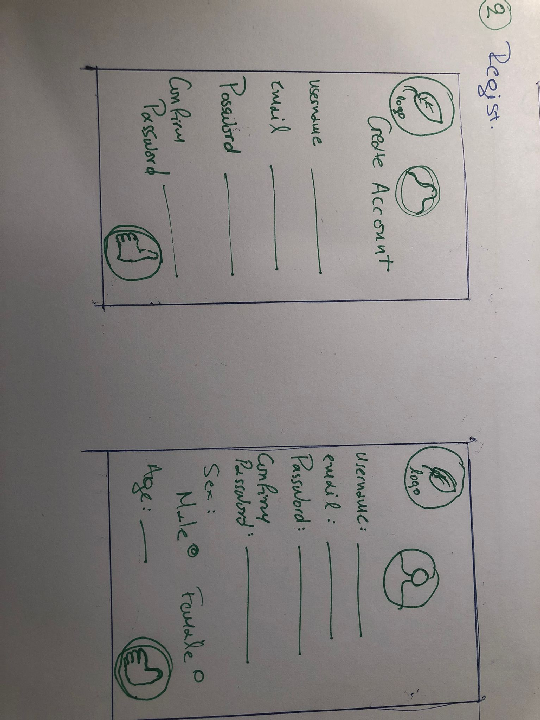 2 Regist.
logo
Create Account
username
email
Password
Confirm
Password
logo
username:
email:
Password:
Confirm
Password:
Sex:
Male Female
Age: